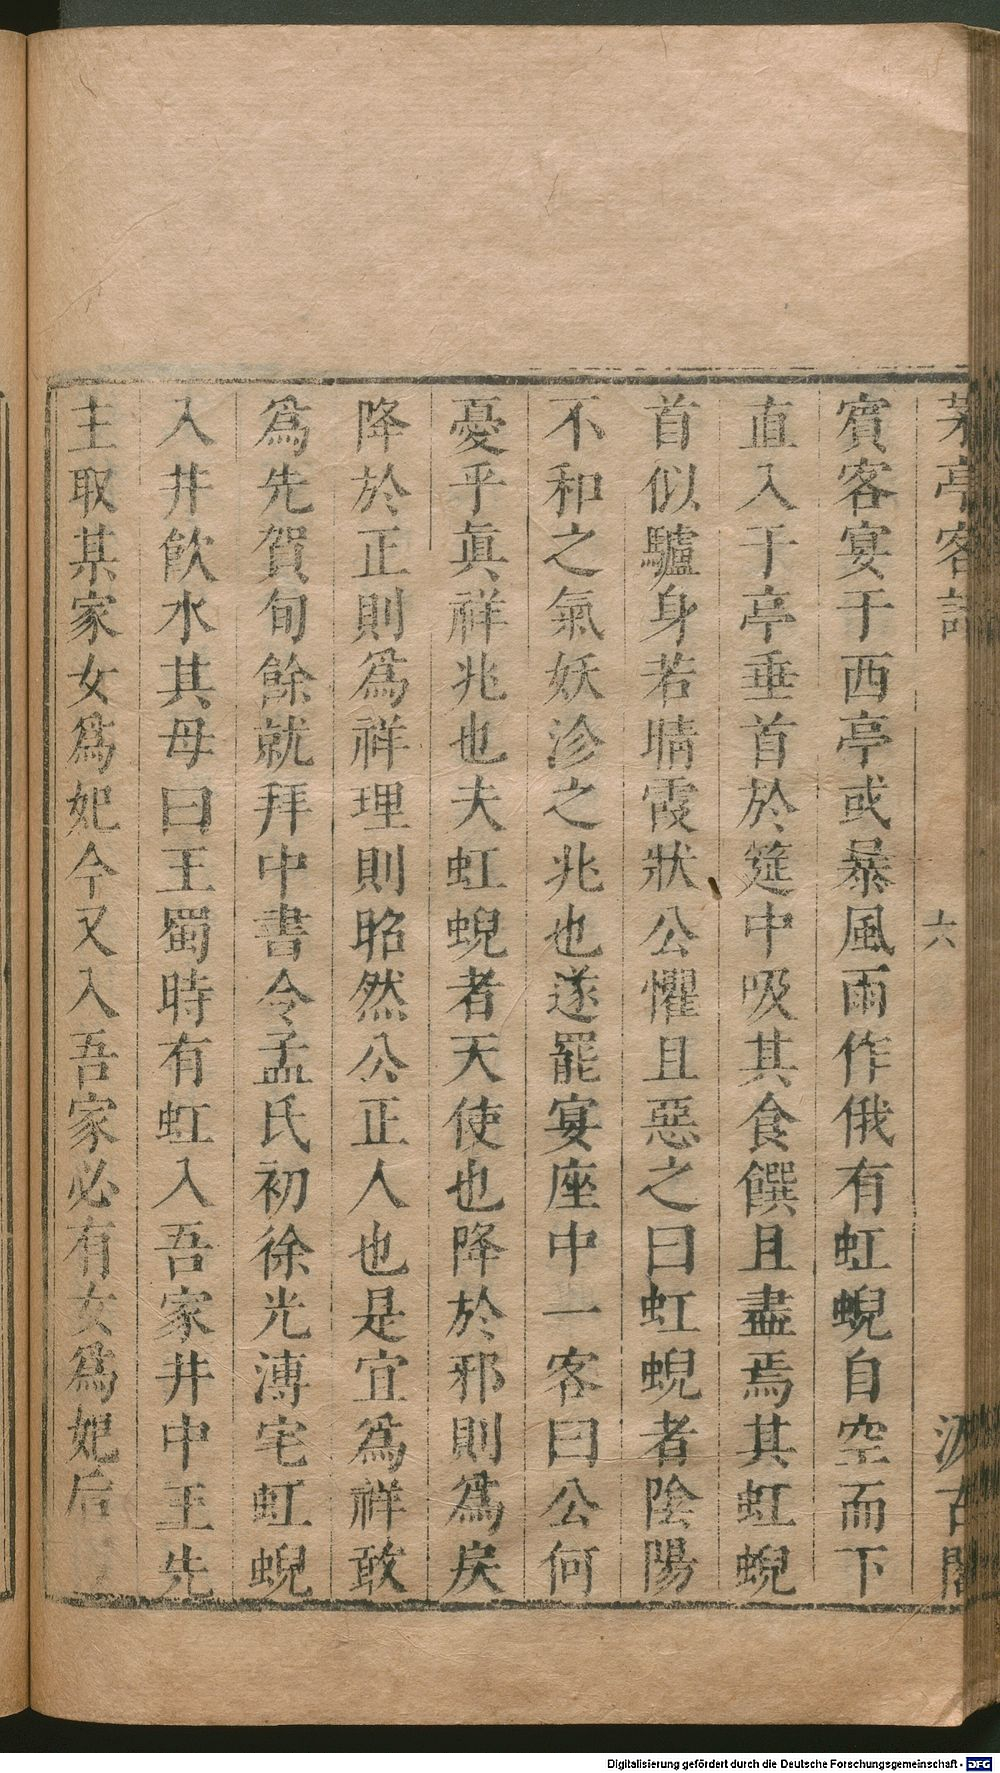 茅亭客話 六 汲古閣
賓客宴于西亭或暴風雨作俄有虹蜺自空而下
直入于亭垂首於筵中吸其食饌且盡焉其虹蜺
首似驢身若晴霞狀公懼且惡之曰虹蜺者陰陽
不和之氣妖沴之兆也遂罷宴座中一客曰公何
憂乎真祥兆也夫虹蜺者天使也降於邪則為戾
降於正則為祥理則昭然公正人也是宜為祥敢
為先賀旬餘就拜中書令孟氏初徐光溥宅虹蜺
入井飲水其母曰王蜀時有虹入吾家井中王先
主取某家女為妃今又入吾家必有女為妃后
Digitalisierung gefördert durch die Deutsche Forschungsgemeinschaft - DFG